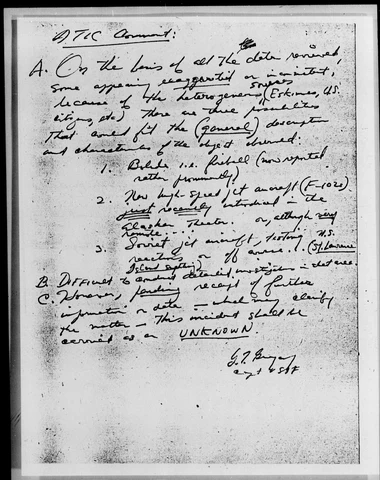 ATIC Comment:
A. On the basis of all the data reviewed,
some appearing exaggerated or inconsistent,
because of the heterogeneous sources (Eskimoes, U.S.
citizens, etc) There are three possibilities
that could fit the (general) description
and characteristics of the object observed:
1. Bolide i.e. fireball (now reported
rather prominently)
2. New high-speed jet aircraft (F-102).
just recently introduced in the
Alaskan Theater. or, although very
remote....
3. Soviet jet aircraft, testing U.S.
reactions or if concerned (St. Lawrence
Island
B. Difficult to conduct detailed investigation in that area.
C. However, pending receipt of further
information or data – which may clarify
the matter – This incident shall be
carried as an UNKNOWN.
G.T. Gregory
Capt USAF